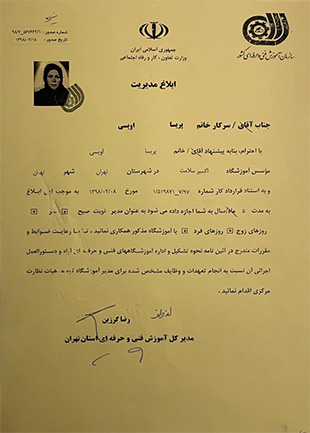 جمهوری اسلامی ایران
وزارت تعاون، کار و رفاه اجتماعی
سازمان آموزش فنی و حرفه ای کشور
شماره صدور :
تاریخ صدور : ۱۳۹۸/۰۲/۱۸
ابلاغ مدیریت
جناب آقای / سرکار خانم پریسا اویسی
با احترام، بنابه پیشنهاد آقای/ خانم پریسا اویسی
مؤسس آموزشگاه اکسیر سلامت در شهرستان تهران شهر تهران
و به استناد قرارداد کار شماره ۱/۵۱۹۸۷۱_۷/۹۷ مورخ ۱۳۹۸/۰۲/۰۸ به موجب این ابلاغ
به مدت ۵ سال به شما اجازه داده می شود به عنوان مدیر نوبت صبح عصر
روزهای زوج روزهای فرد با آموزشگاه مذکور همکاری نمائید، رعایت ضوابط و
مقررات مندرج در آئین نامه نحوه تشکیل و اداره آموزشگاههای فنی و حرفه ای آزاد و دستورالعمل
اجرائی آن نسبت به انجام تعهدات و وظایف مشخص شده برای مدیر آموزشگاه توسط هیات نظارت
مرکزی اقدام نمائید .
رضا گرزین
مدیر کل آموزش فنی و حرفه ای استان تهران